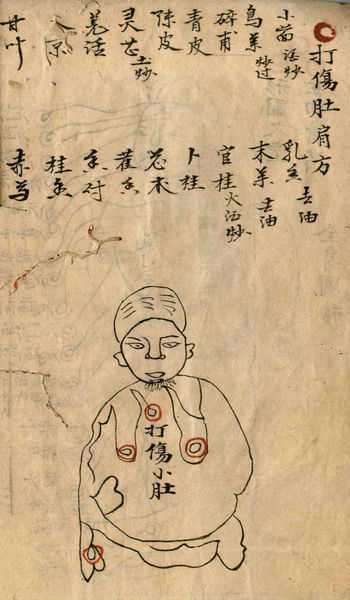 打傷肚肩方
小茴 塩炒
乳香 去油
烏藥 炒过
末药 去油
碎甫
官桂 火酒炒
青皮
卜桂
陈皮
灵芝 土炒
藿香
羌活
香付
京
桂魚
甘叶
赤芍
打傷小肚